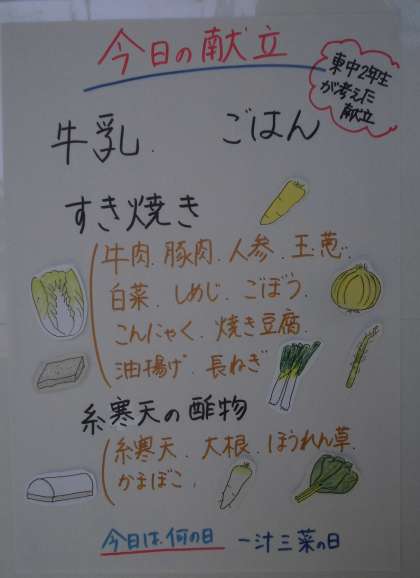 今日の献立
東中2年生
が考えた
献立
牛乳. ごはん
すき焼き
牛肉.豚肉.人参.玉葱.
白菜.しめじ.ごぼう.
こんにゃく.焼き豆腐.
油揚げ.長ねぎ
糸寒天の酢物
糸寒天.大根.ほうれん草.
かまぼこ.
今日は.何の日 一汁三菜の日